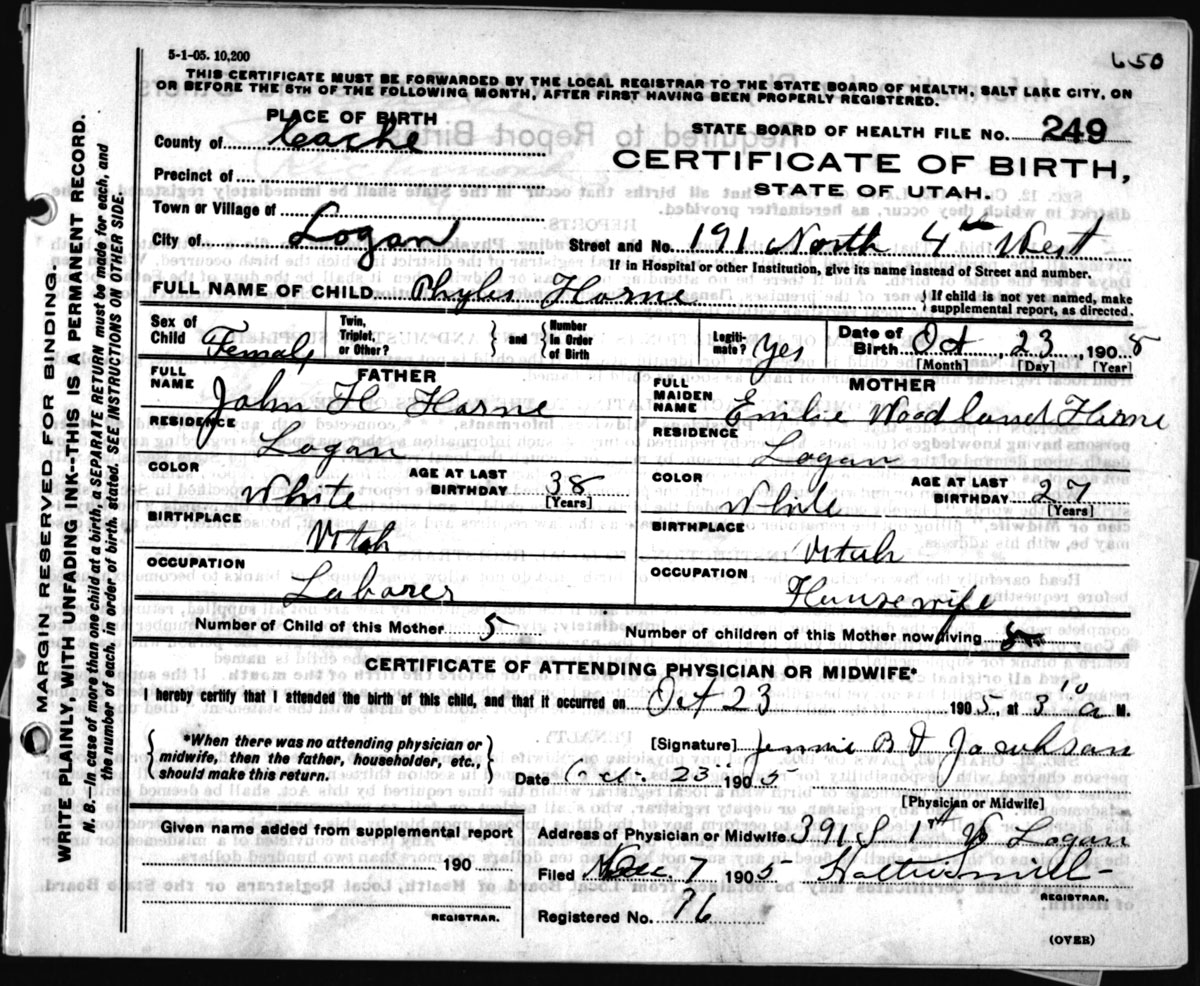 5-1-05. 10,200
650
THIS CERTIFICATE MUST BE FORWARDED BY THE LOCAL REGISTRAR TO THE STATE BOARD OF HEALTH, SALT LAKE CITY, ON
OR BEFORE THE 5TH OF THE FOLLOWING MONTH, AFTER FIRST HAVING BEEN PROPERLY REGISTERED.
PLACE OF BIRTH
County of Cache
Precinct of
Town or Village of
City of Logan
STATE BOARD OF HEALTH FILE No. 249
CERTIFICATE OF BIRTH,
STATE OF UTAH.
Street and No. 191 North 4th West
If in Hospital or other Institution, give its name instead of Street and number.
FULL NAME OF CHILD Phyles Horne
If child is not yet named, make
supplemental report, as directed.
Sex of Child Female
Twin, Triplet, or Other?
and Number in Order of Birth
Legitimate? Yes
Date of Birth Oct 23 1905
[Month] [Day] [Year]
FATHER
FULL NAME John H Horne
RESIDENCE Logan
COLOR White
AGE AT LAST BIRTHDAY 38 [Years]
BIRTHPLACE Utah
OCCUPATION Laborer
MOTHER
FULL MAIDEN NAME Emilie Woodland Horne
RESIDENCE Logan
COLOR White
AGE AT LAST BIRTHDAY 27 [Years]
BIRTHPLACE Utah
OCCUPATION Housewife
Number of Child of this Mother 5
Number of children of this Mother now living 5
CERTIFICATE OF ATTENDING PHYSICIAN OR MIDWIFE*
I hereby certify that I attended the birth of this child, and that it occurred on Oct 23 1905, at 3 a M.
*When there was no attending physician or
midwife, then the father, householder, etc.,
should make this return.
[Signature] Jennie B Jacobson
Date Oct. 23 1905
[Physician or Midwife]
Given name added from supplemental report
190
REGISTRAR.
Address of Physician or Midwife 391 S 1st W Logan
Filed Dec 7 1905
REGISTRAR.
Registered No. 96
(OVER)
MARGIN RESERVED FOR BINDING.
WRITE PLAINLY, WITH UNFADING INK--THIS IS A PERMANENT RECORD.
N. B.--In case of more than one child at a birth, a SEPARATE RETURN must be made for each, and
the number of each, in order of birth, stated. SEE INSTRUCTIONS ON OTHER SIDE.